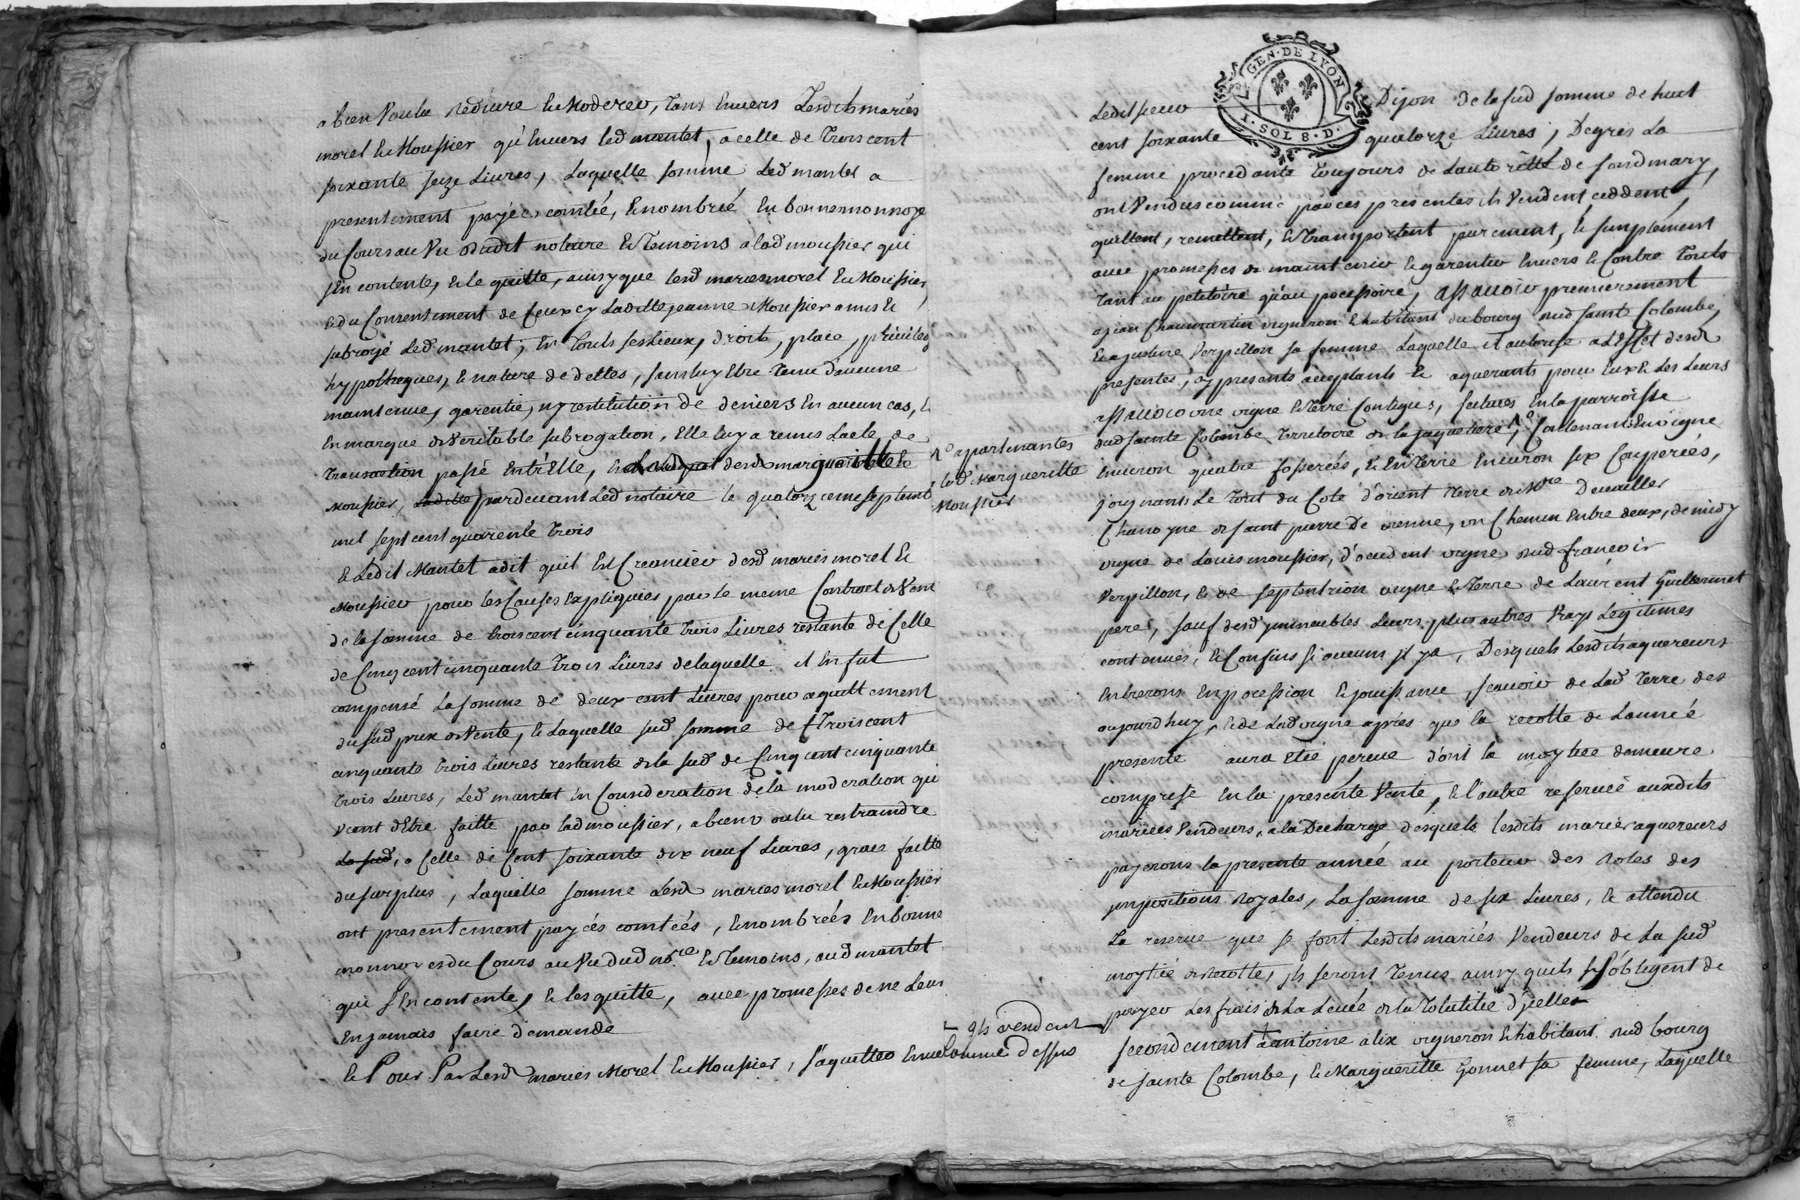 a bien voulu reduire et moderer, tant envers lesdits mariés
morel et Moussier qu'envers led mantet, a celle de Trois cent
soixante seize Livres, Laquelle somme Led mantet a
presentement payée, comtée, et nombrée en bonne monnoye
du Cours au vu dudit notaire et temoins a lad moussier qui
s'en contente, et le quitte, ainsy que lesd maries morel et Moussier,
et du Consentement de ceux cy Laditte jeanne Moussier a mis et
subrogé Led mantet, en touts ses Lieux, droits, place, privileg
hypotheques, et nature de dettes, sans luy etre tenue d'aucune
maintenue, garentie, ny restitution de deniers en aucun cas, et
en marque de veritable subrogation, Elle luy a remis L'acte de
transaction passé entr'Elle, et margueritte
Moussier, pardevant Led notaire le quatorzieme septemb
mil sept cent quarente trois
et Ledit Mantet a dit qu'il est Creancier desd mariés morel et
Moussier pour les Causes expliquées par le meme Contract de vent
de la somme de trois cent cinquante trois Livres restante de Celle
de Cinq cent cinquante trois Livres de laquelle il en fut
compensé La somme de deux cent Livres pour aquittement
du sud prix de vente, et Laquelle sud somme de trois cent
cinquante trois Livres restante de la sud de Cinq cent cinquante
trois Livres, Led mantet en Consideration de la moderation qui
vient d'etre faitte par lad moussier, a bien voulu restraindre
la sud, a Celle de Cent soixante dix neuf Livres, grace faitte
du surplus, Laquelle somme Lesd maries morel et Moussier
ont presentement payés comtés, et nombrées en bonne
monnoye du Cours au vu dud no.re et temoins, aud mantet
qui s'en contente, et les quitte, avec promesses de ne Leur
en jamais faire demande
et Pour Par Lesd mariés Morel et Moussier, s'aquitter envers
n.° apartenantes
led Margueritte
Moussier
qls vendent
comme dessus
GEN. DE LYON
1. SOL 8. D.
Ledit sieur Dijon de la sud somme de huit
cent soixante quatorze Livres, Degres La
femme procedante toujours de L'autorité de sond mary,
ont vendus comme par ces presentes ils vendent ceddent
quittent, remettent, et transportent purement, et simplement
avec promesses de maintenir et garentir envers et Contre touts
tant au petitoire qu'au possessoire, assavoir premierement
a jean Chaumartin vigneron et habitant du bourg dud sainte Colombe,
et agustine Verpillon sa femme Laquelle il autorise a L'effet desd
presentes, cy presents aceptants et aquerants pour eux et Les Leurs
assavoir une vigne et terre contigues, situées en la parroisse
dud sainte Colombe territoire de la jaquetiere, Contenant en vigne
environ quatre fosserées, et en terre environ six Couperées,
joignants Le tout du Coté d'orient terre de Mre Devailles
Chanoyne de saint pierre de vienne, un Chemin entre deux, de midy
vigne de Louis moussier, d'occident vigne dud francois
Verpillon, et de septentrion vigne et terre de Laurent Guillermet
pere, sauf desd immeubles Leurs plus autres vrays Legitimes
contenues, et Confins si aucuns il y a, Desquels Lesdits aquereurs
entreront en pocession et jouissance, scavoir de Lad terre des
aujourdhuy, et de Lad vigne après que la recolte de L'année
presente aura eté percue dont la moytiée demeure
comprise en la presente vente, et l'autre reservée auxdits
mariées vendeurs, a la Decharge desquels lesdits mariés aquereurs
payeront la presente année au porteur des Roles des
impositions Royales, La somme de six Livres, et attendu
La reserve que se font Lesdits mariés vendeurs de La sud
moytiée de recolte, ils seront tenus ainsy quils s'obligent de
payer Les frais de La Levée de la totalitée d'icelles
secondement a antoine alix vigneron et habitant dud bourg
de sainte Colombe, et Margueritte Gonnet sa femme, Laquelle